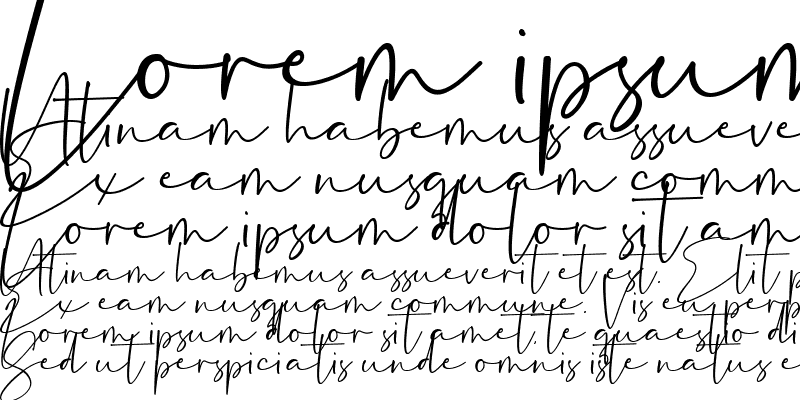 Lorem ipsum
Atinam habemus assueve
Ex eam nusquam comm
Lorem ipsum dolor sit am
Atinam habemus assueverit et est. Elit p
Ex eam nusquam commune. Vis eu perp
Lorem ipsum dolor sit amet, te quaestio di
Sed ut perspiciatis unde omnis iste natus e